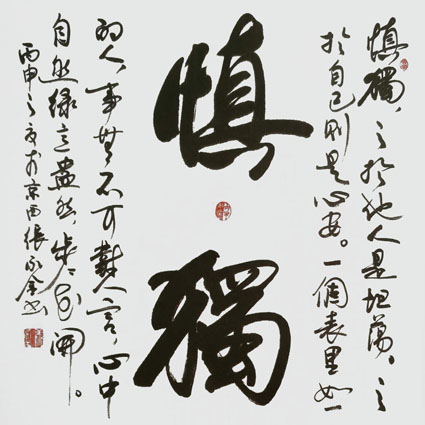 慎獨
慎獨，之於他人是坦蕩，之
於自己則是心安。一個表里如一
的人，事無不可對人言，心中
自然緑意盎然，步々花開。
丙申之夏於京西張永金书